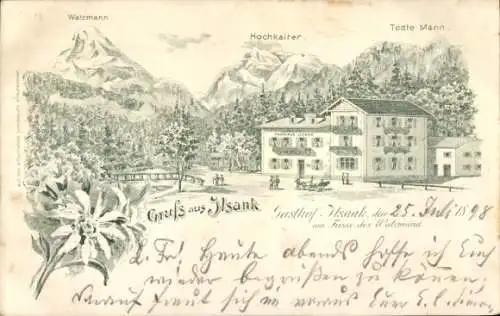 Watzmann
Hochkalter.
Todte Mann.
GASTHAUS ILSANK
Gruß aus Ilsank.
Gasthof Ilsank, den 25. Juli 1898
am Fusse des Watzmann
L. Fr! Heute abends hoffe ich Euch
wieder begrüßen zu können.
Darauf freut sich im voraus Euer